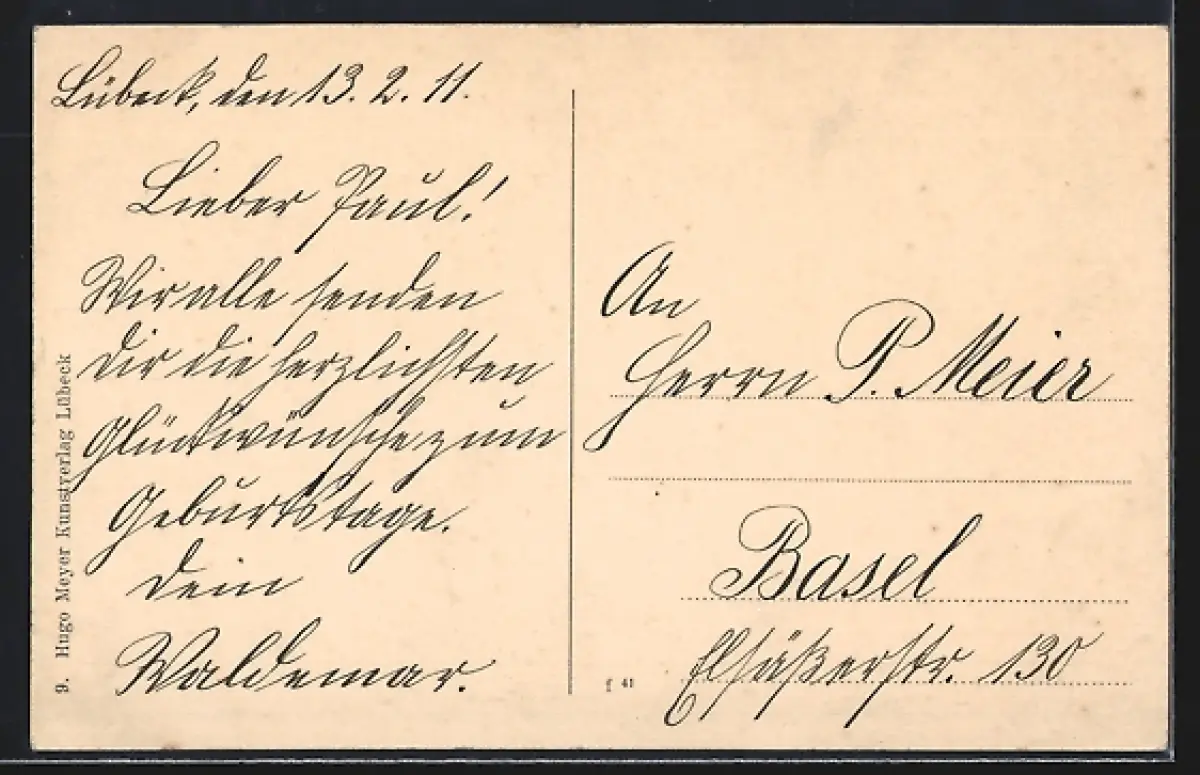 Lübeck, den 13. 2. 11.
Lieber Paul!
Wir alle senden
Dir die herzlichsten
Glückwünsche zum
Geburtstage.
Dein
Waldemar.
An
Herrn P. Meier
Basel
Elsäßerstr. 130
9. Hugo Meyer Kunstverlag Lübeck
f 41